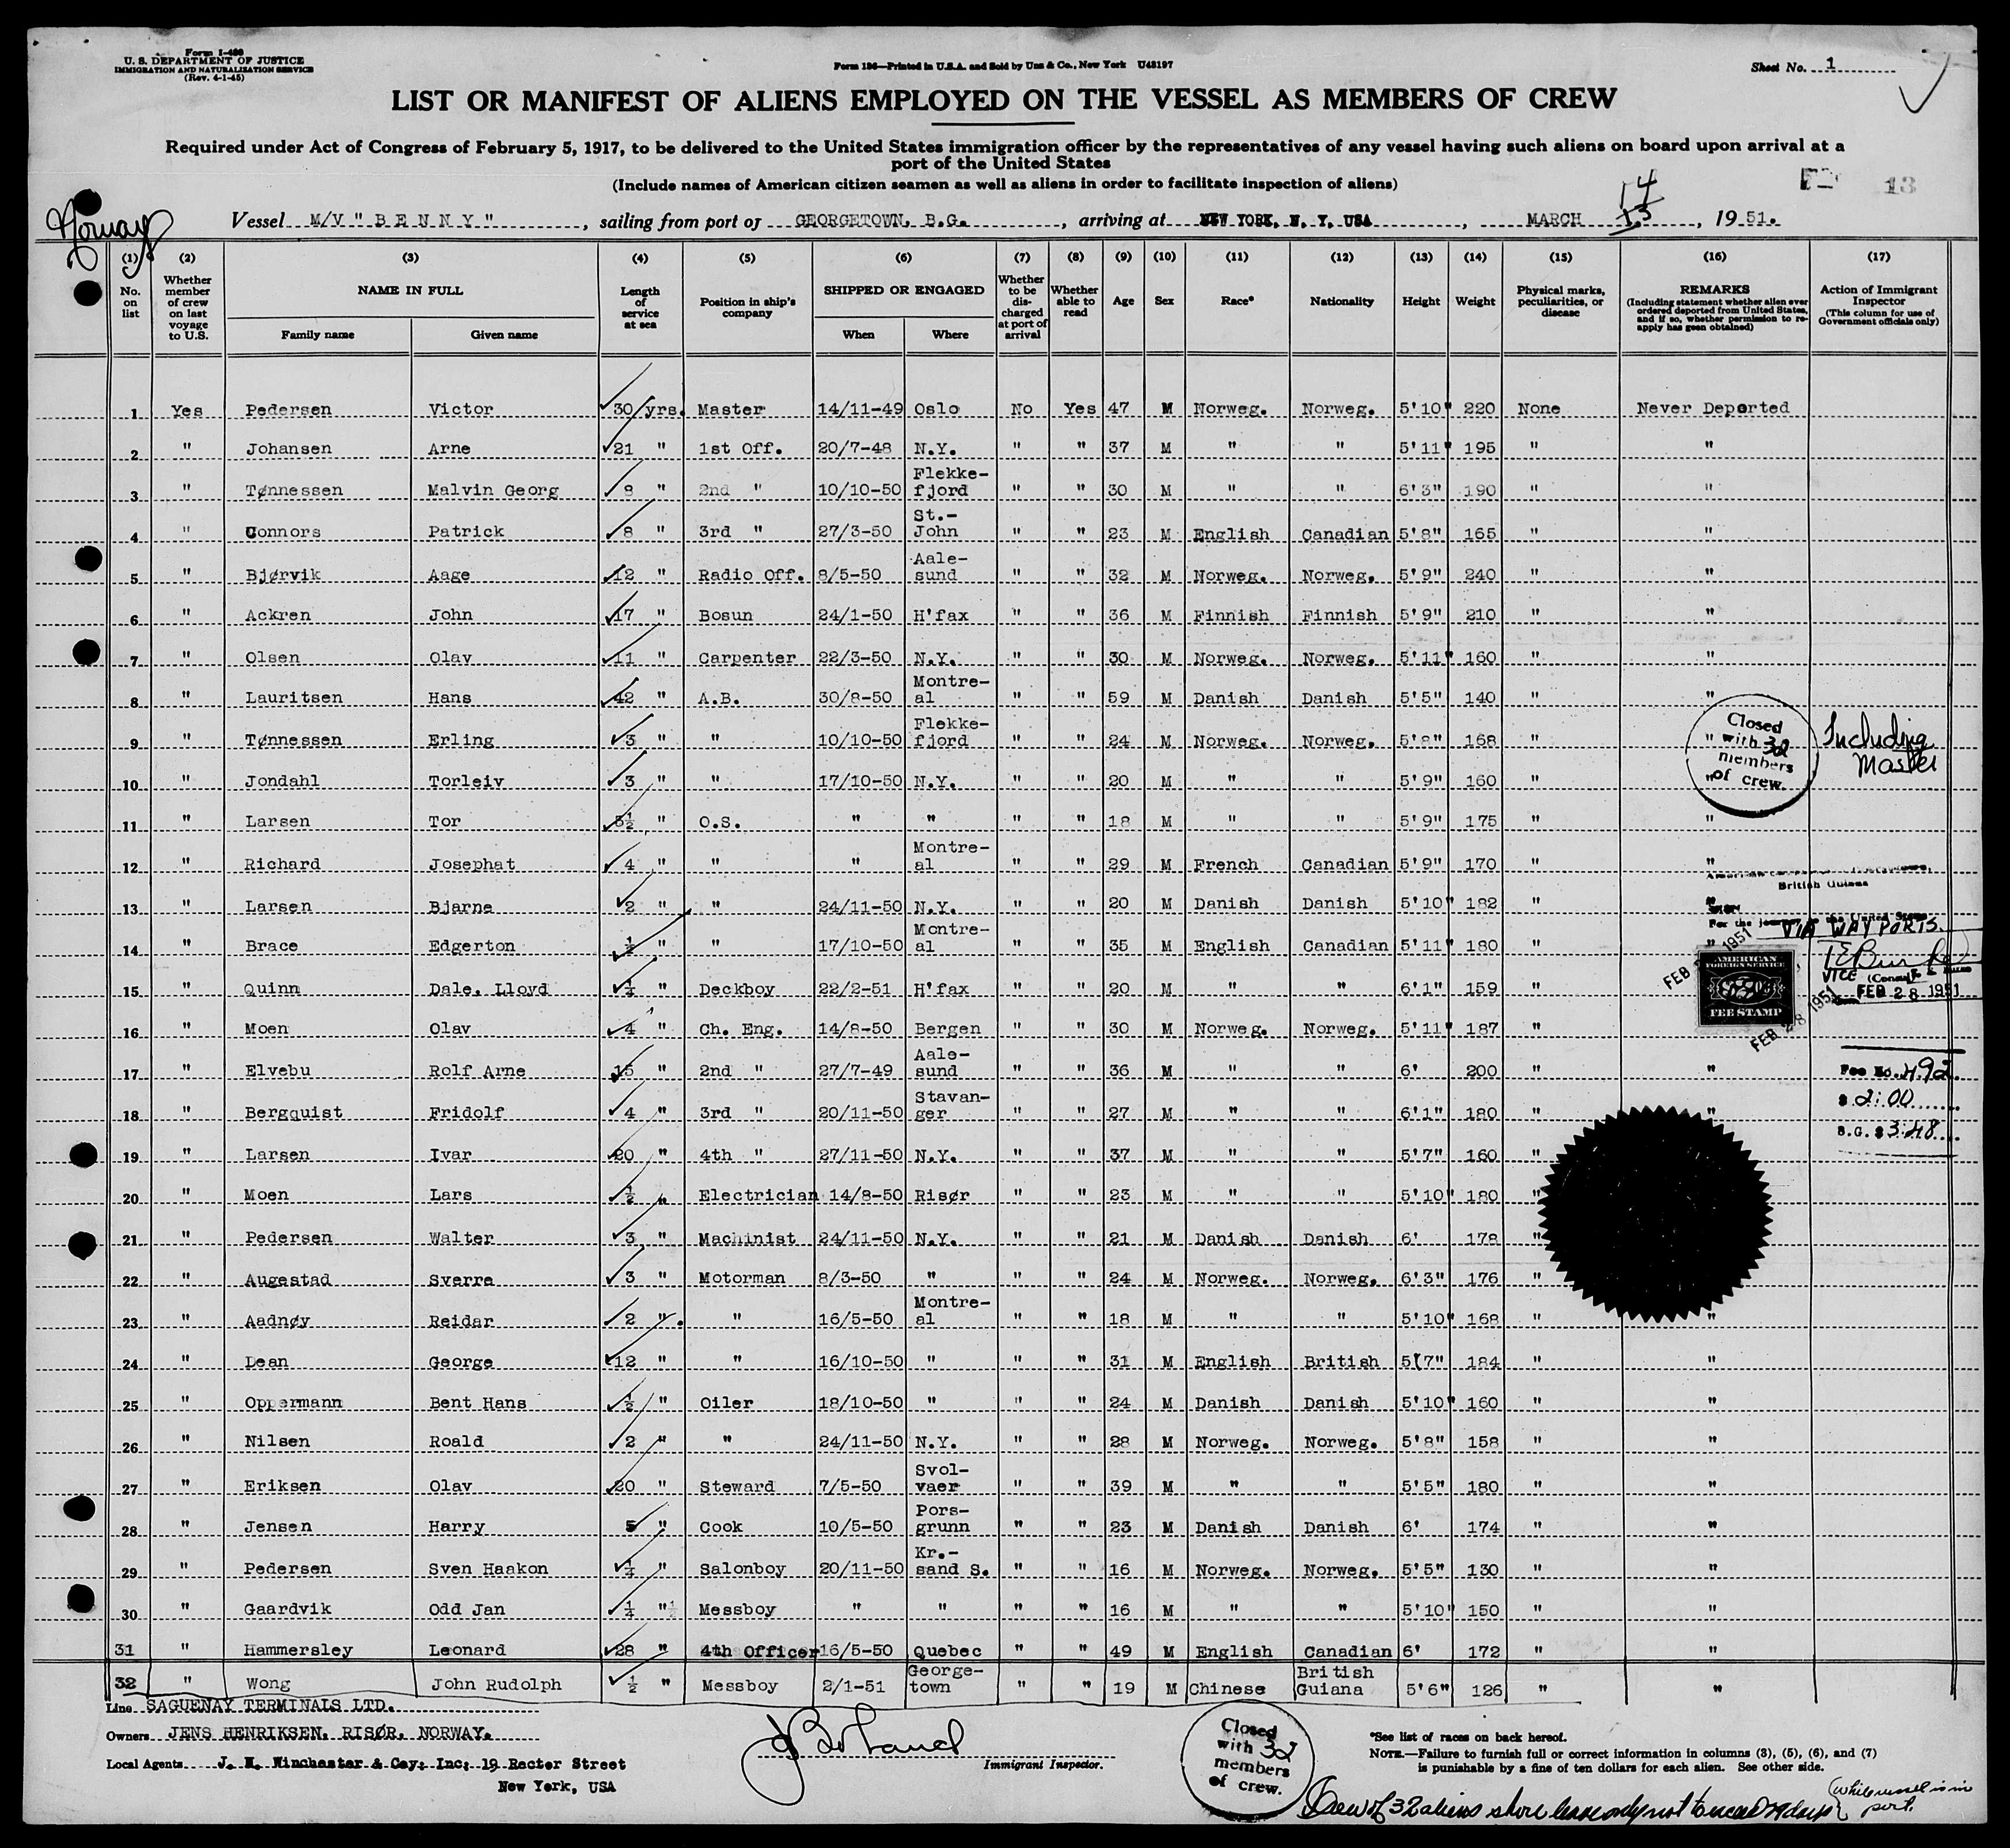 Form I-480
U. S. DEPARTMENT OF JUSTICE
IMMIGRATION AND NATURALIZATION SERVICE
(Rev. 4-1-45)
Form 186—Printed in U.S.A. and Sold by Unz & Co., New York U48197
Sheet No. 1
LIST OR MANIFEST OF ALIENS EMPLOYED ON THE VESSEL AS MEMBERS OF CREW
Required under Act of Congress of February 5, 1917, to be delivered to the United States immigration officer by the representatives of any vessel having such aliens on board upon arrival at a
port of the United States
(Include names of American citizen seamen as well as aliens in order to facilitate inspection of aliens)
13
Norway
Vessel M/V " B E N N Y ", sailing from port of GEORGETOWN, B.G., arriving at NEW YORK, N. Y. USA, MARCH 14 13, 1951.
(1) No. on list (2) Whether member of crew on last voyage to U.S. (3) NAME IN FULL Family name Given name (4) Length of service at sea (5) Position in ship's company (6) SHIPPED OR ENGAGED When Where (7) Whether to be discharged at port of arrival (8) Whether able to read (9) Age (10) Sex (11) Race* (12) Nationality (13) Height (14) Weight (15) Physical marks, peculiarities, or disease (16) REMARKS (Including statement whether alien ever ordered deported from United States, and if so, whether permission to re-apply has geen obtained) (17) Action of Immigrant Inspector (This column for use of Government officials only)
1 Yes Pedersen Victor 30 yrs. Master 14/11-49 Oslo No Yes 47 M Norweg. Norweg. 5'10" 220 None Never Deported
2 " Johansen Arne 21 " 1st Off. 20/7-48 N.Y. " " 37 M " " 5'11" 195 " "
3 " Tønnessen Malvin Georg 8 " 2nd " 10/10-50 Flekke-fjord " " 30 M " " 6'3" 190 " "
4 " Connors Patrick 8 " 3rd " 27/3-50 St.-John " " 23 M English Canadian 5'8" 165 " "
5 " Bjørvik Aage 12 " Radio Off. 8/5-50 Aale-sund " " 32 M Norweg. Norweg. 5'9" 240 " "
6 " Ackren John 17 " Bosun 24/1-50 H'fax " " 36 M Finnish Finnish 5'9" 210 " "
7 " Olsen Olav 11 " Carpenter 22/3-50 N.Y. " " 30 M Norweg. Norweg. 5'11" 160 " "
8 " Lauritsen Hans 42 " A.B. 30/8-50 Montre-al " " 59 M Danish Danish 5'5" 140 " "
9 " Tønnessen Erling 3 " " 10/10-50 Flekke-fjord " " 24 M Norweg. Norweg. 5'8" 168 " "
10 " Jondahl Torleiv 3 " " 17/10-50 N.Y. " " 20 M " " 5'9" 160 " "
Closed with 32 members of crew.
Including Master
11 " Larsen Tor ½ " O.S. " " " " 18 M " " 5'9" 175 " "
12 " Richard Josephat 4 " " " Montre-al " " 29 M French Canadian 5'9" 170 " "
British Guiana
13 " Larsen Bjarne 2 " " 24/11-50 N.Y. " " 20 M Danish Danish 5'10" 182 " "
For the journey to the United States
VIA WAY PORTS.
14 " Brace Edgerton ½ " " 17/10-50 Montre-al " " 35 M English Canadian 5'11" 180 " "
15 " Quinn Dale, Lloyd ¼ " Deckboy 22/2-51 H'fax " " 20 M " " 6'1" 159 "
AMERICAN FOREIGN SERVICE FEE STAMP
VICE Consul
FEB 28 1951
FEB 28 1951
16 " Moen Olav 4 " Ch. Eng. 14/8-50 Bergen " " 30 M Norweg. Norweg. 5'11" 187 "
17 " Elvebu Rolf Arne 15 " 2nd " 27/7-49 Aale-sund " " 36 M " " 6' 200 " "
Fee No. 492.
$ 2.00
B.G. $ 3.48
18 " Bergquist Fridolf 4 " 3rd " 20/11-50 Stavan-ger " " 27 M " " 6'1" 180 " "
19 " Larsen Ivar 20 " 4th " 27/11-50 N.Y. " " 37 M " " 5'7" 160 "
20 " Moen Lars ½ " Electrician 14/8-50 Risør " " 23 M " " 5'10" 180 "
21 " Pedersen Walter 3 " Machinist 24/11-50 N.Y. " " 21 M Danish Danish 6' 178 "
22 " Augestad Sverre 3 " Motorman 8/3-50 " " " 24 M Norweg. Norweg. 6'3" 176 "
23 " Aadnøy Reidar 2 " " 16/5-50 Montre-al " " 18 M " " 5'10" 168 " "
24 " Dean George 12 " " 16/10-50 " " " 31 M English British 5'7" 184 " "
25 " Oppermann Bent Hans ½ " Oiler 18/10-50 " " " 24 M Danish Danish 5'10" 160 " "
26 " Nilsen Roald 2 " " 24/11-50 N.Y. " " 28 M Norweg. Norweg. 5'8" 158 " "
27 " Eriksen Olav 20 " Steward 7/5-50 Svol-vaer " " 39 M " " 5'5" 180 " "
28 " Jensen Harry 5 " Cook 10/5-50 Pors-grunn " " 23 M Danish Danish 6' 174 " "
29 " Pedersen Sven Haakon ¼ " Salonboy 20/11-50 Kr.-sand S. " " 16 M Norweg. Norweg. 5'5" 130 " "
30 " Gaardvik Odd Jan ¼ " Messboy " " " " 16 M " " 5'10" 150 " "
31 " Hammersley Leonard 28 " 4th Officer 16/5-50 Quebec " " 49 M English Canadian 6' 172 " "
32 " Wong John Rudolph ½ " Messboy 2/1-51 George-town " " 19 M Chinese British Guiana 5'6" 126 " "
Line SAGUENAY TERMINALS LTD.
Owners JENS HENRIKSEN, RISØR, NORWAY.
Local Agents J. H. Winchester & Coy: Inc: 19 Rector Street
New York, USA
Immigrant Inspector.
Closed with 32 members of crew.
*See list of races on back hereof.
NOTE.—Failure to furnish full or correct information in columns (3), (5), (6), and (7)
is punishable by a fine of ten dollars for each alien. See other side.
Crew of 32 aliens shore leave only not to exceed 29 days (while vessel is in port.